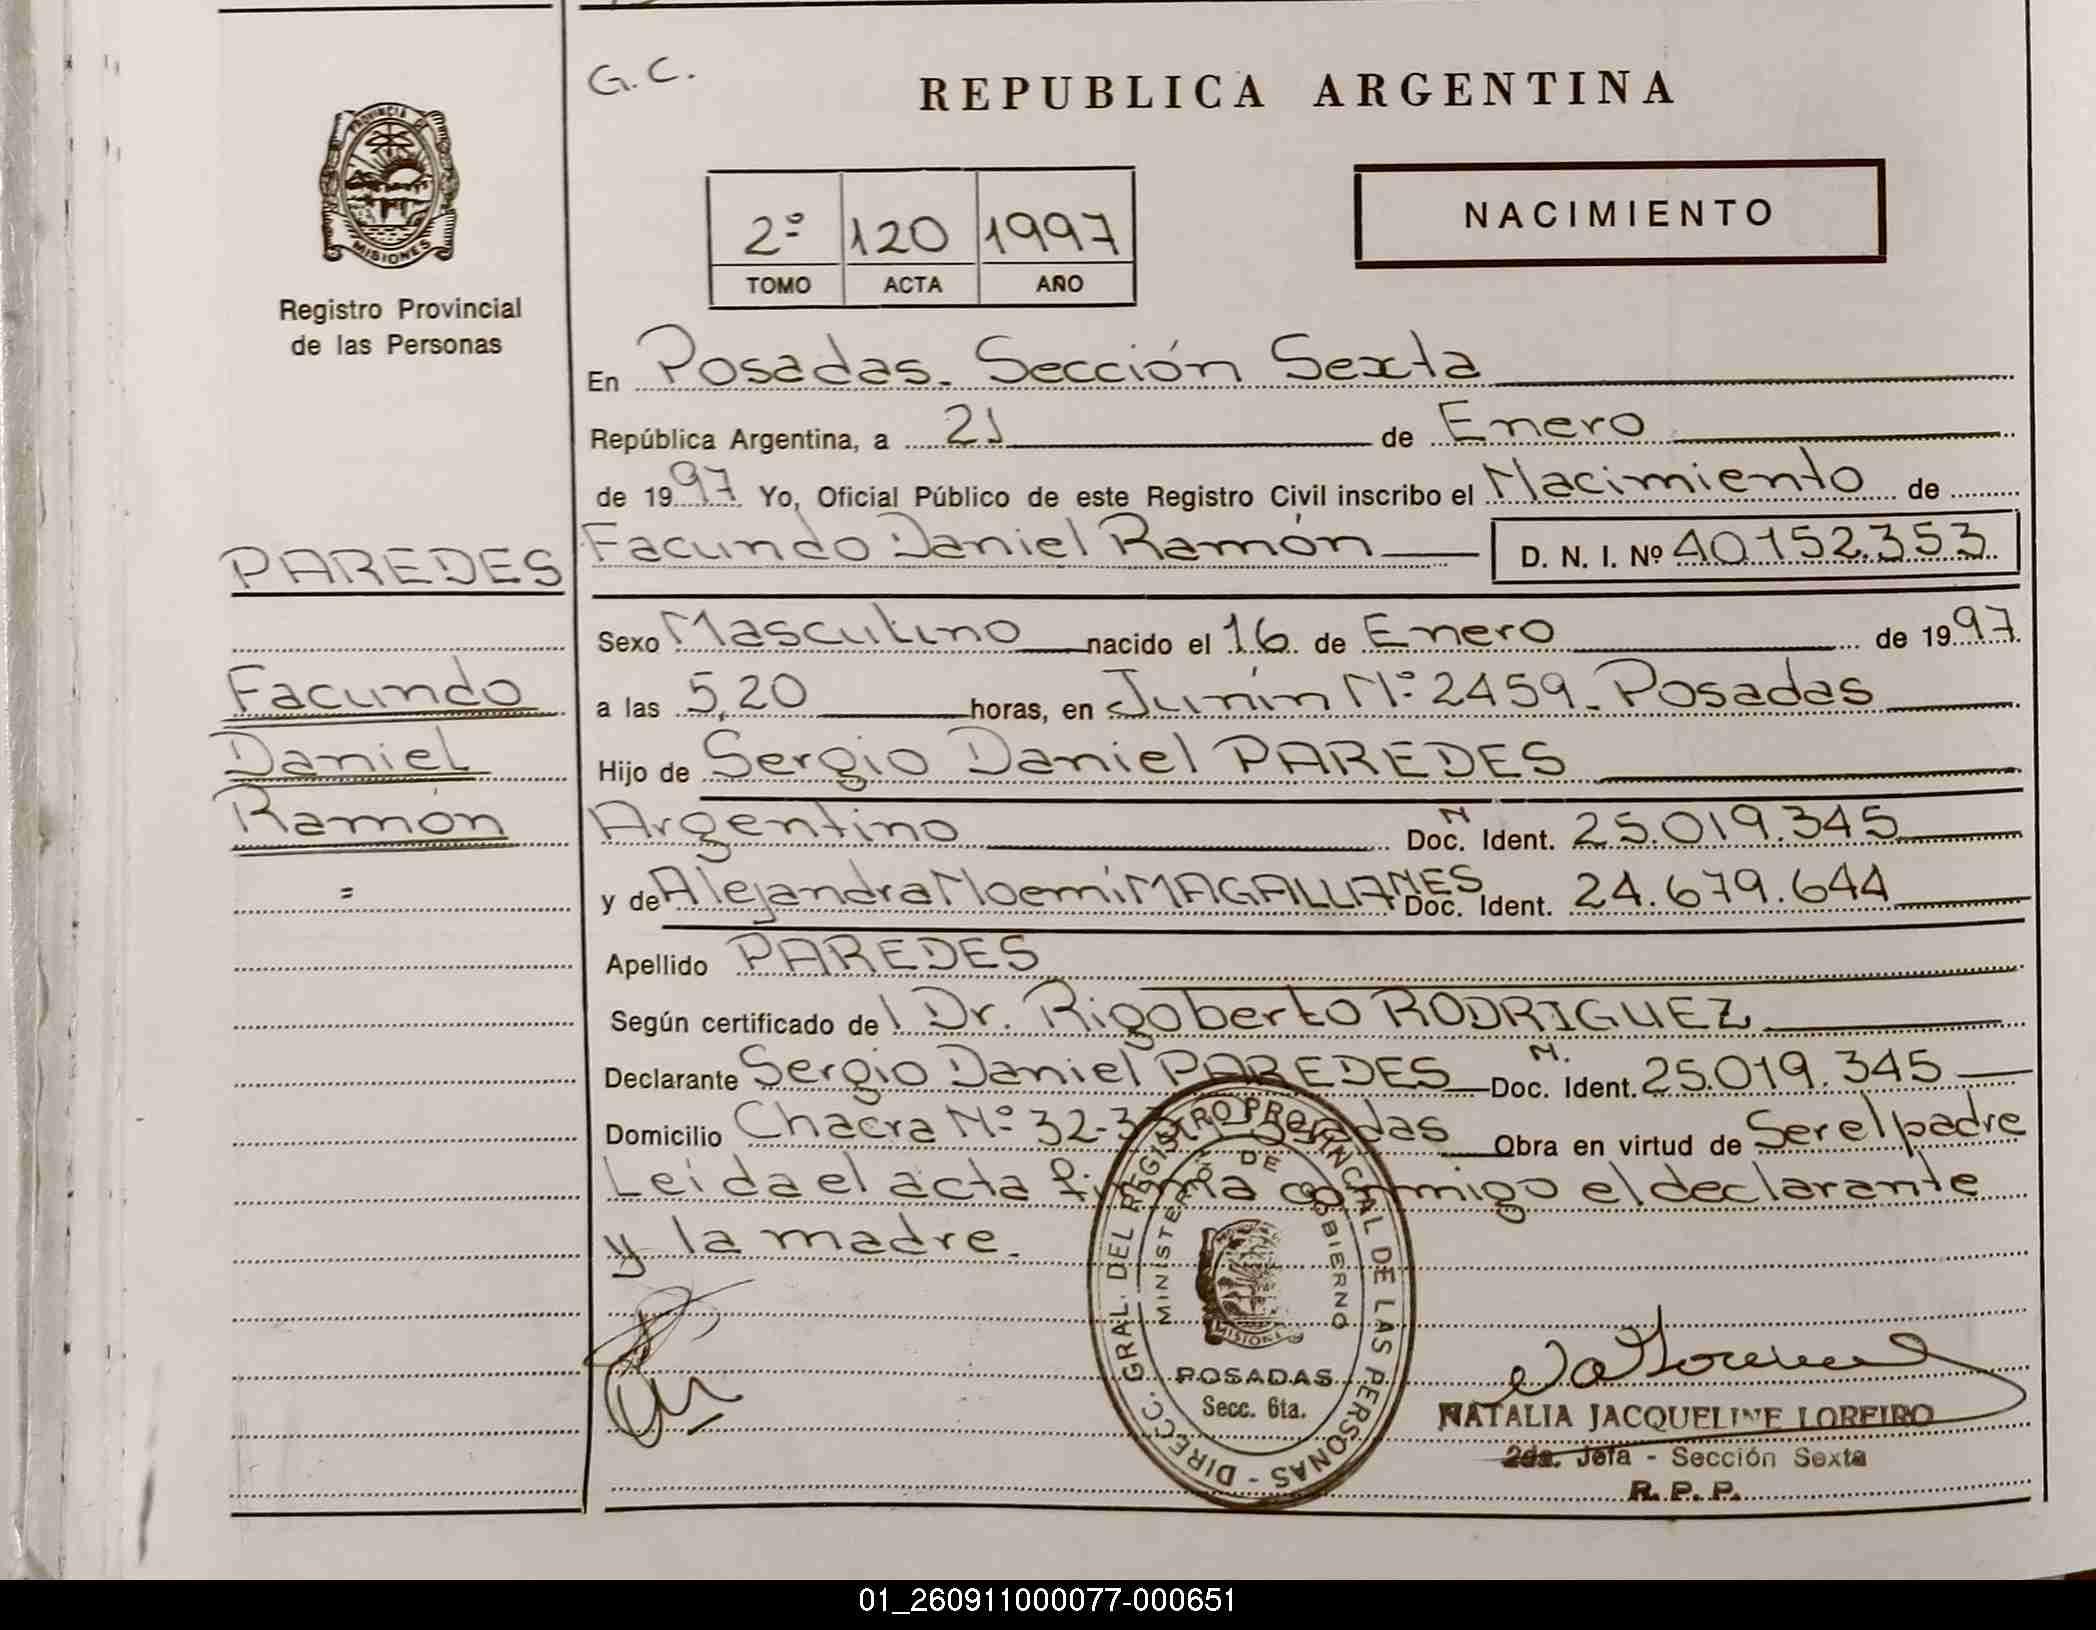 G.C.
REPUBLICA ARGENTINA
PROVINCIA DE
MISIONES
Registro Provincial
de las Personas
2º 120 1997
TOMO ACTA AÑO
NACIMIENTO
En Posadas. Sección Sexta
República Argentina, a 21 de Enero
de 1997 Yo, Oficial Público de este Registro Civil inscribo el Nacimiento de
PAREDES Facundo Daniel Ramón D. N. I. Nº 40.152.353
Sexo Masculino nacido el 16 de Enero de 1997
Facundo a las 5,20 horas, en Junín Nº 2459. Posadas
Daniel Hijo de Sergio Daniel PAREDES
Ramón Argentino Doc. N Ident. 25.019.345
= y de Alejandra Noemí MAGALLANES Doc. Ident. 24.679.644
Apellido PAREDES
Según certificado del Dr. Rigoberto RODRIGUEZ
Declarante Sergio Daniel PAREDES Doc. N. Ident. 25.019.345
Domicilio Chacra Nº 32-33 Posadas Obra en virtud de Ser el padre
Leida el acta firma conmigo el declarante
y la madre.
DIRECC. GRAL. DEL REGISTRO PROVINCIAL DE LAS PERSONAS -
MINISTERIO DE GOBIERNO
MISIONES
POSADAS
Secc. 6ta.
NATALIA JACQUELINE LOREIRO
2da. Jefa - Sección Sexta
R. P. P.
01_260911000077-000651